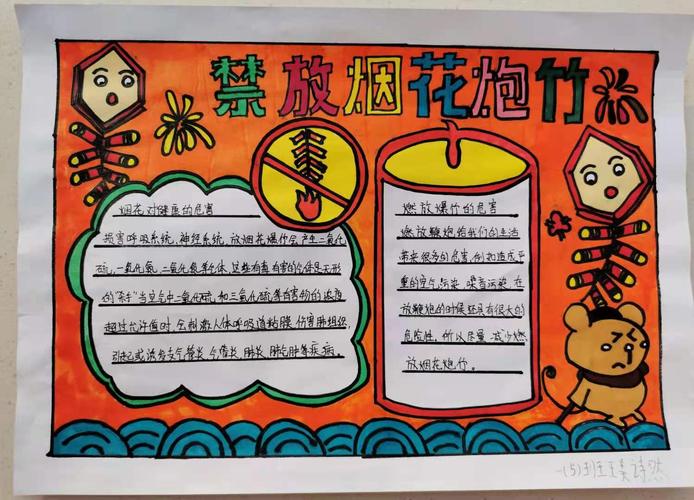 禁放烟花炮竹
烟花对健康的危害
损害呼吸系统、神经系统，放烟花爆竹会产生二氧化
硫、一氧化氮、二氧化氮等气体，这些有毒有害的气体是无形
的"杀手"当空气中二氧化硫和三氧化硫等有害物的浓度
超过允许值时，会刺激人体呼吸道粘膜，伤害肺组织，
引起或诱发支气管炎、气管炎、肺炎、肺气肿等疾病。
燃放爆竹的危害
燃放鞭炮给我们的生活
带来很多的危害，例如造成严
重的空气污染、噪音污染，在
放鞭炮的时候还具有很大的
危险性，所以尽量减少燃
放烟花炮竹。
一(5)班王诗然